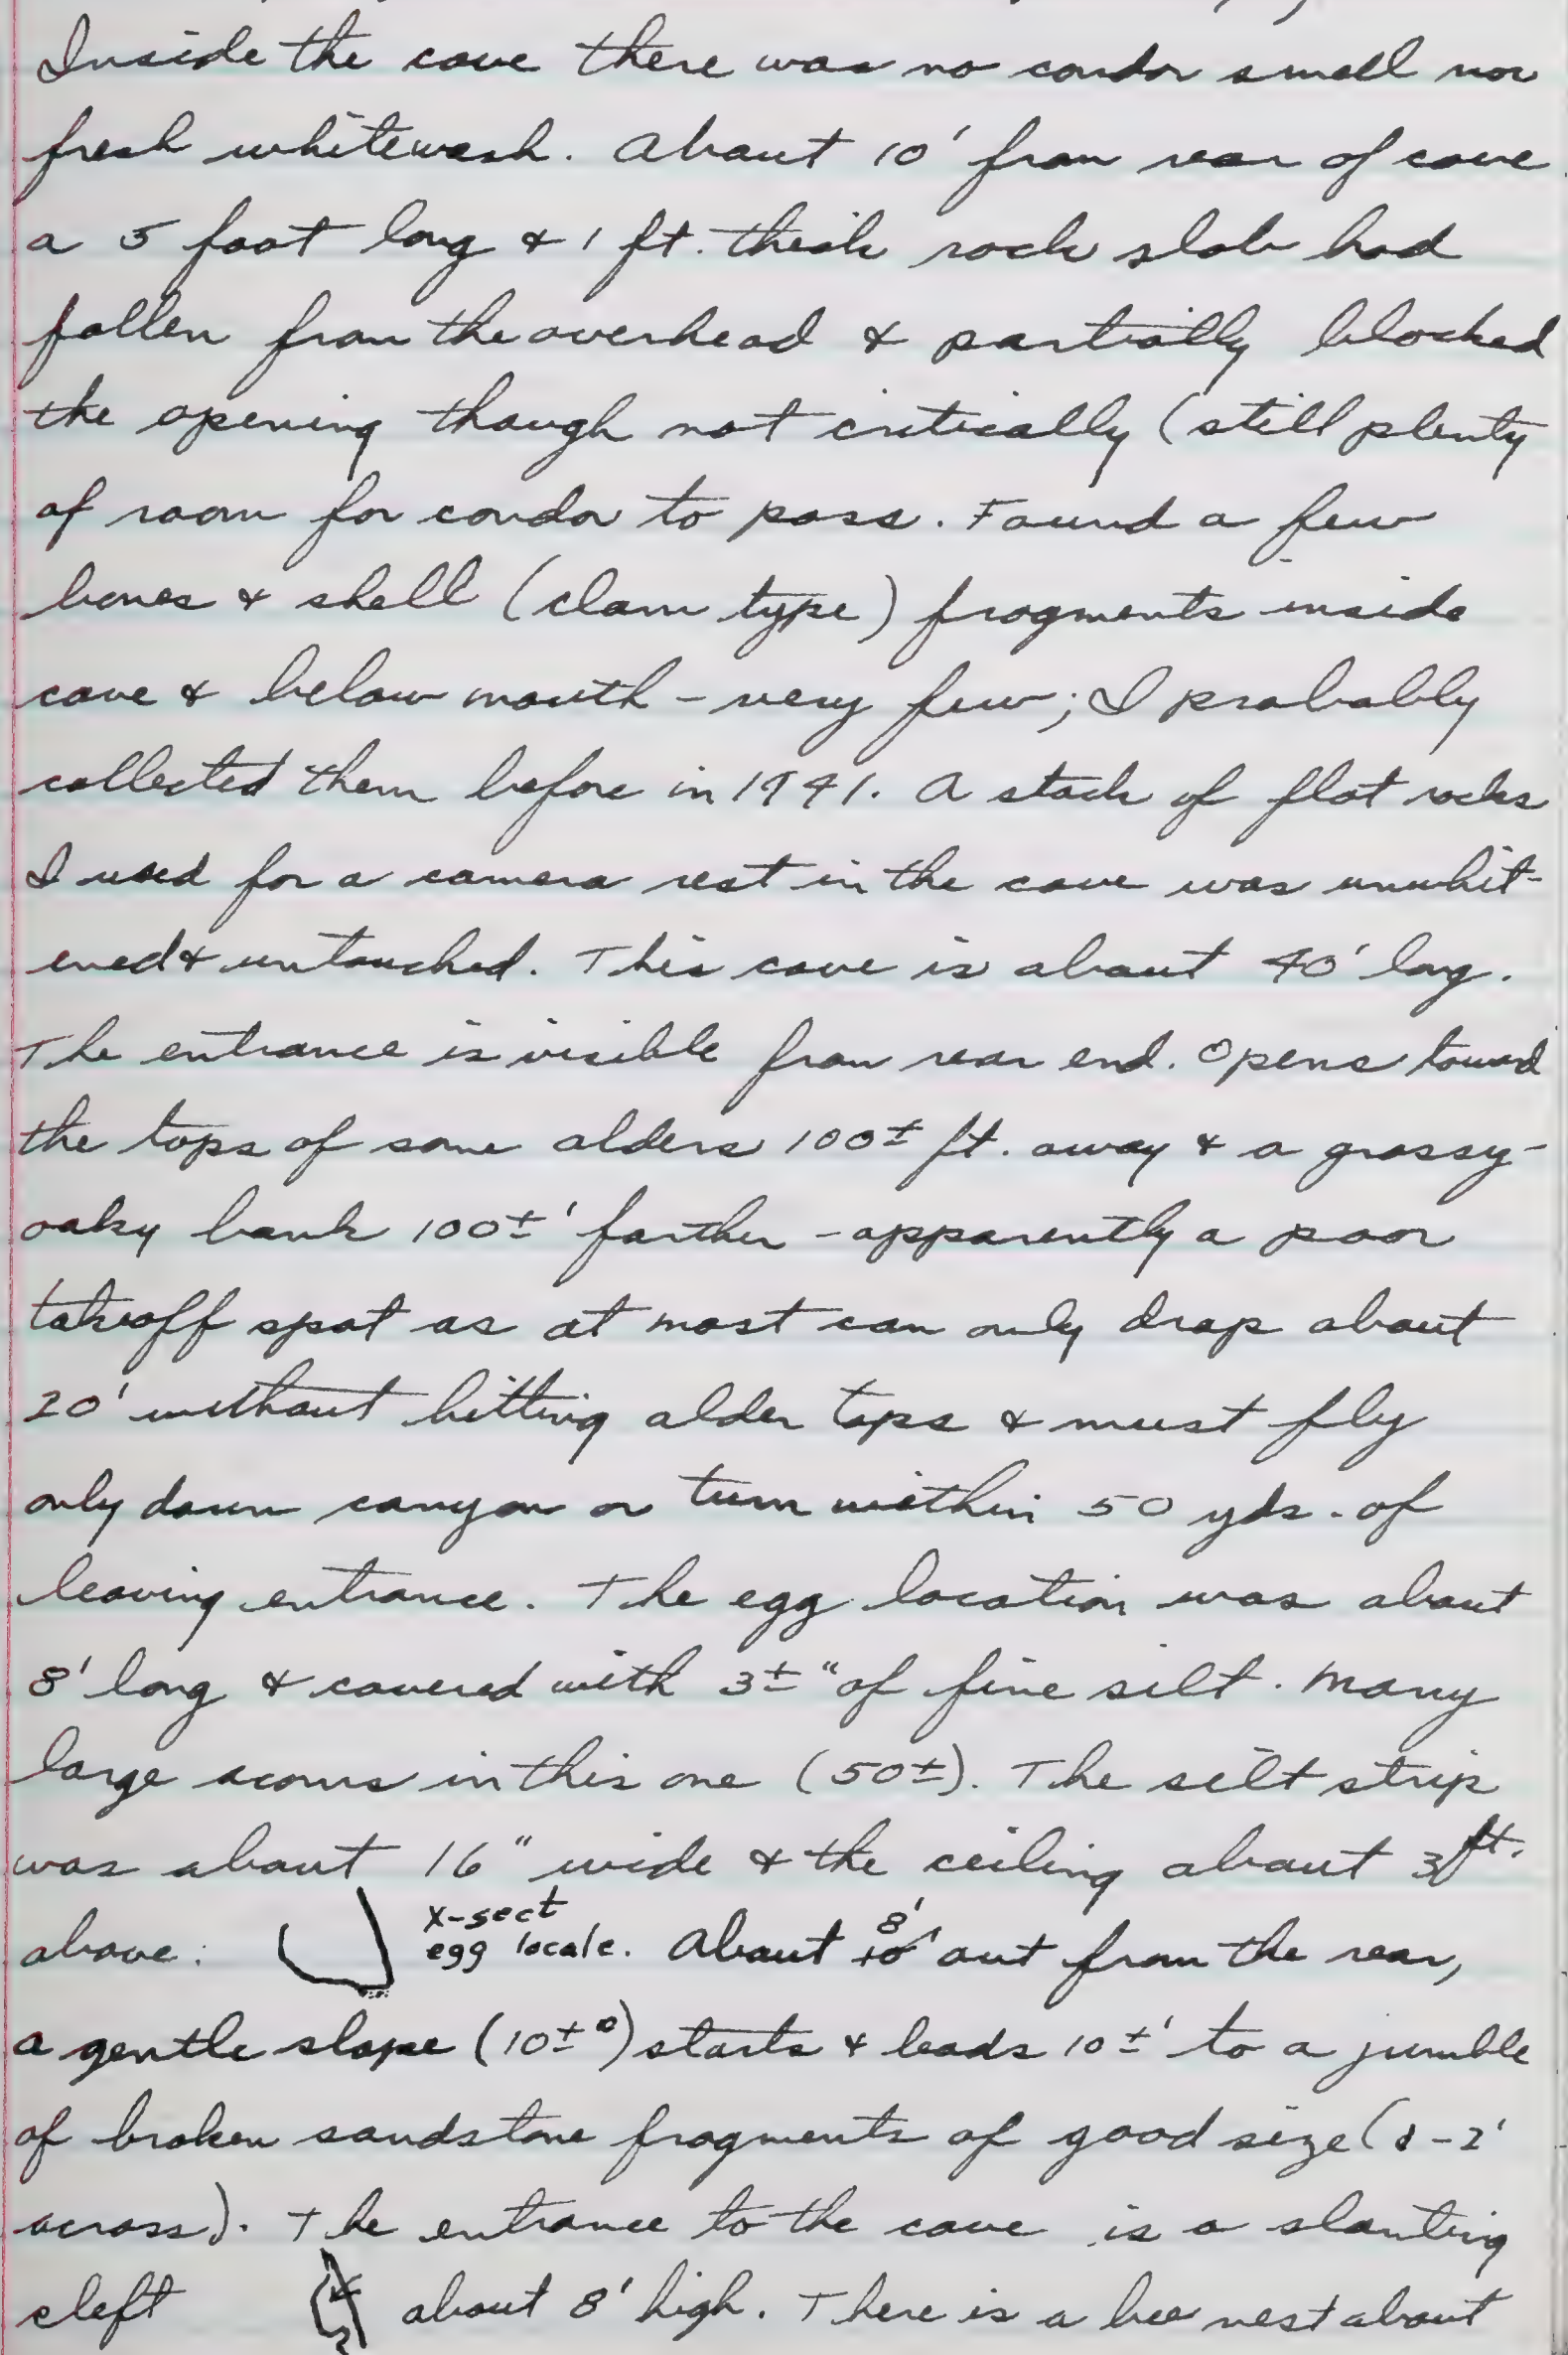 Inside the cave there was no condor smell nor
fresh whitewash. About 10' from rear of cave
a 5 foot long & 1 ft. thick rock slab had
fallen from the overhead & partially blocked
the opening though not critically (still plenty
of room for condor to pass. Found a few
bones & shell (clam type) fragments inside
cave & below mouth - very few; I probably
collected them before in 1941. A stack of flat rocks
I used for a camera rest in the cave was unwhit-
ened & untouched. This cave is about 40' long.
The entrance is visible from rear end. Opens toward
the tops of some alders 100± ft. away & a grassy-
oaky bank 100±' farther - apparently a poor
takeoff spot as at most can only drop about
20' without hitting alder tops & must fly
only down canyon or turn within 50 yds. of
leaving entrance. The egg location was about
8' long & covered with 3±" of fine silt. Many
large acorns in this one (50±). The silt strip
was about 16" wide & the ceiling about 3 ft.
above: X-sect egg locale. About 8' out from the rear,
a gentle slope (10±°) starts & leads 10±' to a jumble
of broken sandstone fragments of good size (1-2'
across). The entrance to the cave is a slanting
cleft about 8' high. There is a bee nest about